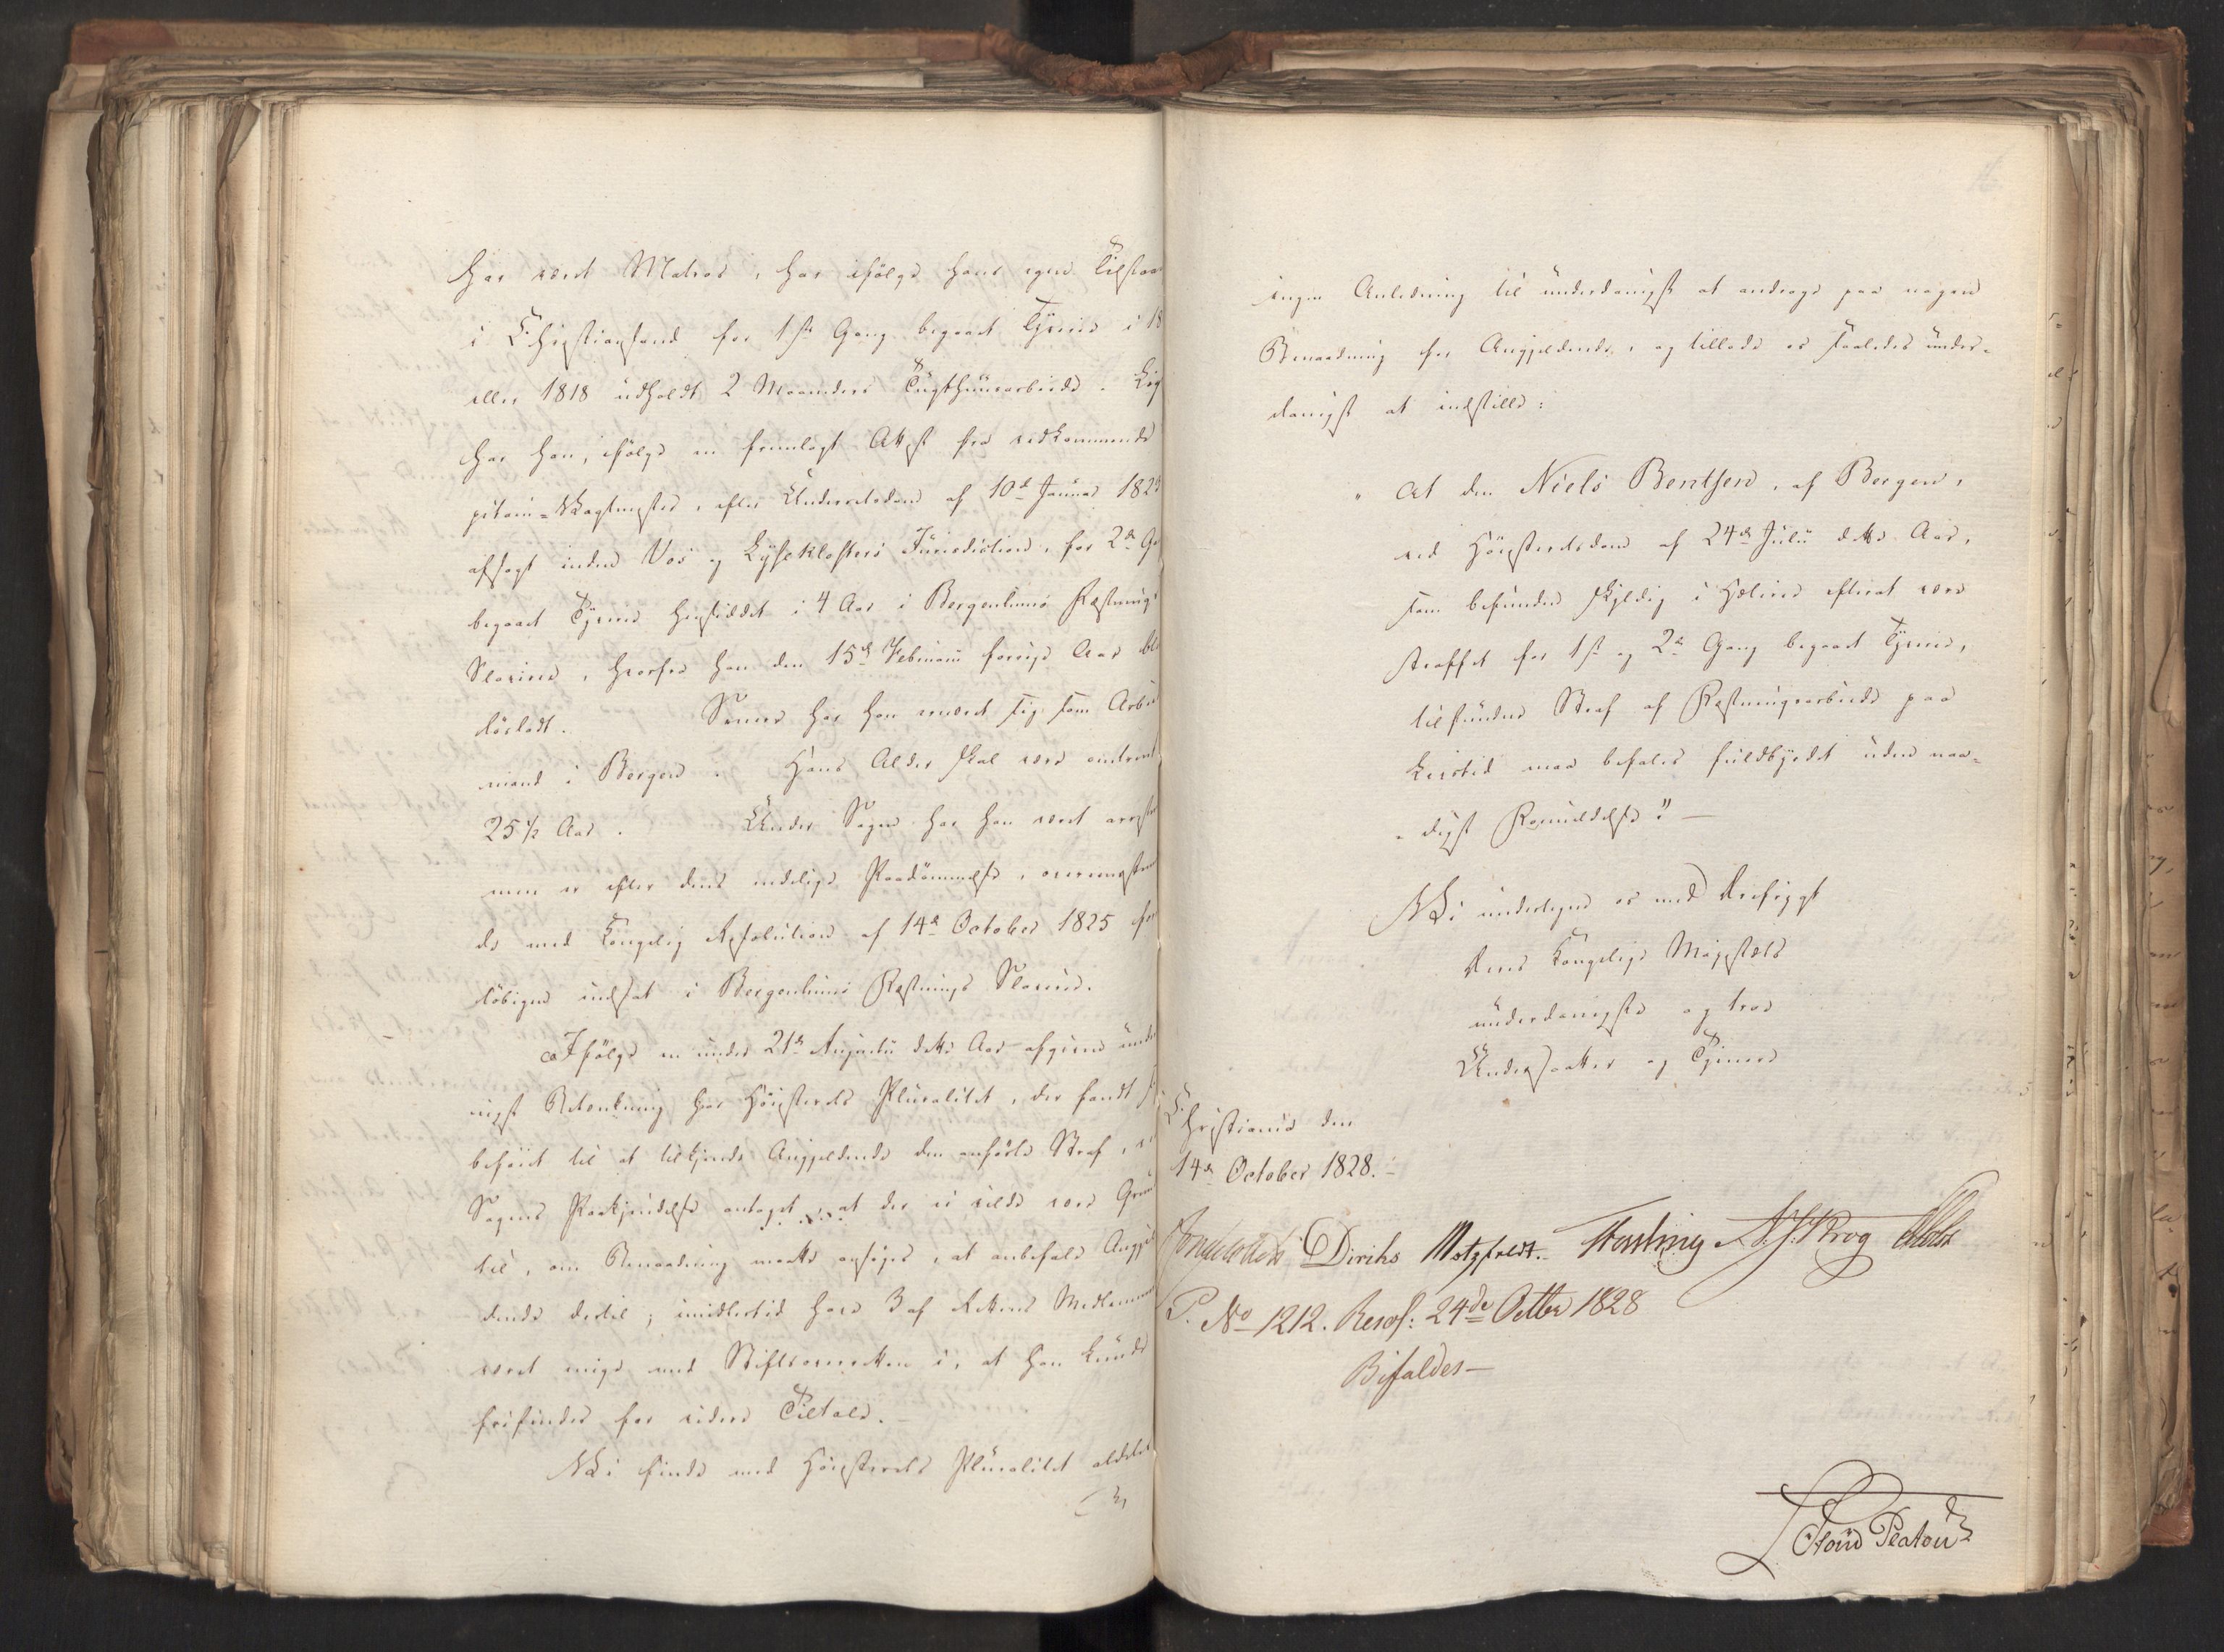 har vært Matros, har ifölge hans egen Tilstaa
i Christiansand for 1ste Gang begaaet Tyverie i 18
eller 1818 udholdt 2 Maaneders Tugthuusarbeide. Lig
har han, ifölge en fremlagt Attest fra vedkommende
pitain-Vagtmester, efter Underretsdom af 10de Januar 182
afsagt inden Vos og Lyseklosters Jurisdiction, for 2den Ga
begaaet Tyverie hensiddet i 4 Aar i Bergenhuus Fæstnings
Slaverie, hvorfra han den 15de Februarii forrige Aar ble
lösladt. Senere har han ernæret sig som Arbei
mand i Bergen. Hans Alder skal være omtrent
25 1/2 Aar. Under Sagen har han været arrester
men er efter dens endelige Paadömmelse, overeensstem
de med Kongelig Resolution af 14de October 1825 for
löbigen indsat i Bergenhuus Fæstnings Slaverie.
Ifölge en under 21de Augustii dette Aar afgiven under
nigst Betænkning har Höiesterets Pluralitet, der fandt si
beföiet til at tilkjende Angjeldende den anförte Straf, ve
Sagens Paakjendelse antaget at der ei vilde være Grun
til, om Benaadning maatte ansöges, at anbefale Angjel
dende dertil; imidlertid have 3 af Rettens Medlemmer
været enige med Stiftsoverretten i, at han kunde
frifindes for videre Tiltale.
Vi finde med Höiesterets Pluralitet aldeles
ingen Anledning til underdanigst at andrage paa nogen
Benaadning for Angjeldende, og tillade os saaledes under-
danigst at indstille:
"At den Niels Bentsen, af Bergen,
ved Höiesteretsdom af 24de Julii dette Aar,
som befunden skyldig i Hælerie efterat være
straffet for 1ste og 2den Gang begaaet Tyverie,
tilfundne Straf af Fæstningsarbeide paa
Livstid maa befales fuldbyrdet uden naa-
digst Formildelse." —
Vi undertegne os med Ærefrygt
Deres Kongelige Majestæts
underdanigste og troe
Undersaatter og Tjenere
Christiania den
14de October 1828.
Diriks Motzfeldt. N. J. Krog
P. No 1212. Resol: 24de Octbr 1828
Bifaldes —